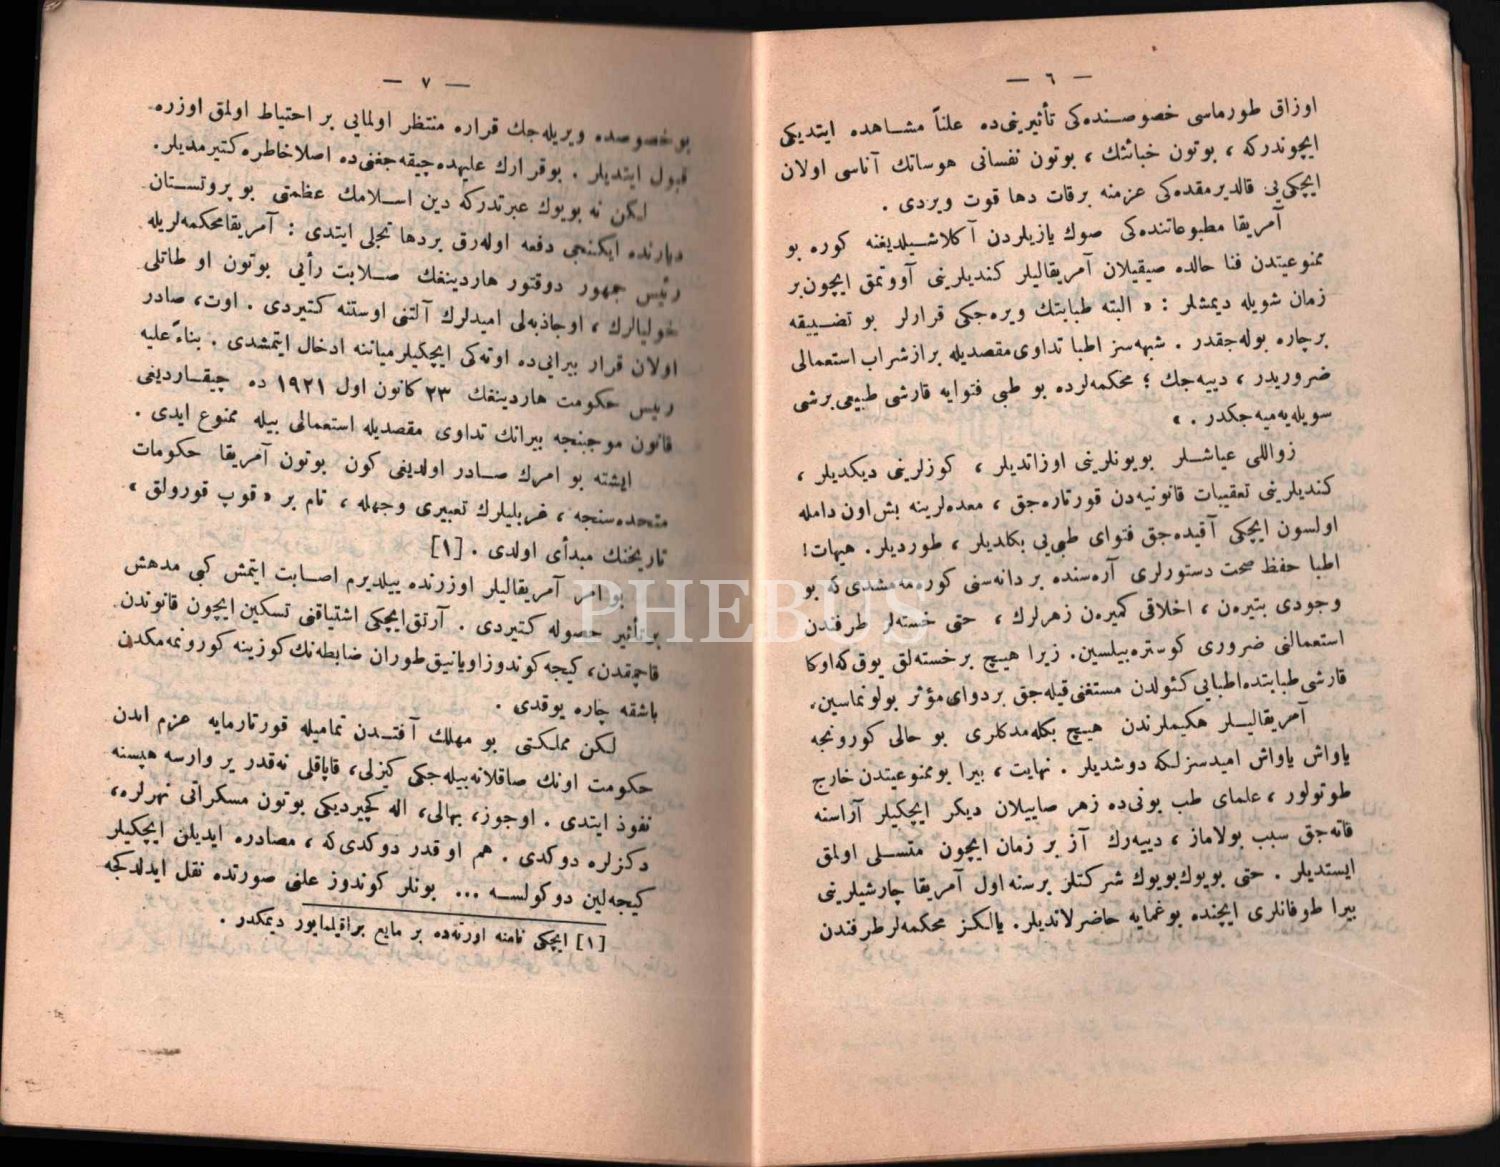 — ٦ —
اوزاق طورماسی خصوصنده‌كی تأثیرینی‌ده علناً مشاهده ایتدیكی
ایچوندركه ، بوتون خبائثك ، بوتون نفسانی هوساتك آناسی اولان
ایچكی‌یی قالدیرمقده‌كی عزمنه برقات دها قوت ویردی .
آمریقا مطبوعاتنده‌كی صوك یازیلردن آكلاشیلدیغنه كوره بو
ممنوعیتدن فنا حالده صیقیلان آمریقالیلر كندیلرینی آووتمق ایچون بر
زمان شویله دیمشلر : « البته طبابتك ویره‌جكی قرارلر بو تضییقه
برچاره بوله‌جقدر . شبهه‌سز اطبا تداوی مقصدیله براز شراب استعمالی
ضروریدر ، دییه‌جك ؛ محكمه‌لرده بو طبی فتوایه قارشی طبیعی برشی
سویله‌یه‌میه‌جكدر . »
زواللی عیاشلر بویونلرینی اوزاتدیلر ، كوزلرینی دیكدیلر ،
كندیلرینی تعقیبات قانونیه‌دن قورتاره‌جق ، معده‌لرینه بش اون دامله
اولسون ایچكی آقیده‌جق فتوای طبی‌یی بكلدیلر ، طوردیلر. هیهات!
اطبا حفظ صحت دستورلری آره‌سنده بر دانه‌سنی كوره‌مه‌مشدی كه بو
وجودی بتیره‌ن ، اخلاقی كمیره‌ن زهرلرك ، حتی خسته‌لر طرفندن
استعمالنی ضروری كوستره‌بیلسین. زیرا هیچ برخسته‌لق یوق كه اوكا
قارشی طبابتده اطبایی كئولدن مستغنی قیله‌جق بر دوای مؤثر بولونماسین.
آمریقالیلر حكیملرندن هیچ بكله‌مدكلری بو حالی كورونجه
یاواش یاواش امیدسزلكه دوشدیلر . نهایت ، بیرا بو ممنوعیتدن خارج
طوتولور ، علمای طب بونی‌ده زهر صاییلان دیكر ایچكیلر آراسنه
قاته‌جق سبب بولاماز ، دییه‌رك آز بر زمان ایچون متسلی اولمق
ایستدیلر . حتی بویوك بویوك شركتلر برسنه اول آمریقا چارشیلرینی
بیرا طوفانلری ایچنده بوغمایه حاضرلاندیلر. یالكز محكمه‌لر طرفندن
— ٧ —
بو خصوصده ویریله‌جك قراره منتظر اولمایی بر احتیاط اولمق اوزره
قبول ایتدیلر . بو قرارك علیهده چیقه‌جغنی‌ده اصلا خاطره كتیرمدیلر.
لیكن نه بویوك عبرتدركه دین اسلامك عظمتی بو پروتستان
دیارنده ایكنجی دفعه اوله‌رق بردها تجلی ایتدی : آمریقا محكمه‌لریله
رئیس جمهور دوقتور هاردینغك صلابت رأیی بوتون او طاتلی
خولیالرك ، او جاذبه‌لی امیدلرك آلتنی اوستنه كتیردی . اوت، صادر
اولان قرار بیرایی‌ده اوته‌كی ایچكیلر میاننه ادخال ایتمشدی . بناءً علیه
رئیس حكومت هاردینغك ٢٣ كانون اول ١٩٢١ ده چیقاردیغی
قانون موجبنجه بیرانك تداوی مقصدیله استعمالی بیله ممنوع ایدی .
ایشته بو امرك صادر اولدیغی كون بوتون آمریقا حكومات
متحده‌سنجه ، غربلیلرك تعبیری وجهله ، تام بر « قوپ قورولق »
تاریخنك مبدأی اولدی . [١]
بو امر آمریقالیلر اوزرنده ییلدیرم اصابت ایتمش كبی مدهش
بر تأثیر حصوله كتیردی . آرتق ایچكی اشتیاقنی تسكین ایچون قانوندن
قاچمقدن، كیجه كوندوز اویانیق طوران ضابطه‌نك كوزینه كورونمه‌مكدن
باشقه چاره یوقدی .
لكن مملكتی بو مهلك آفتدن تمامیله قورتارمایه عزم ایدن
حكومت اونك صاقلانه‌بیله‌جكی كیزلی، قاپاقلی نه‌قدر یر وارسه هپسنه
نفوذ ایتدی . اوجوز، بهالی، اله كچیردیكی بوتون مسكراتی نهرلره،
دكزلره دوكدی . هم او قدر دوكدی كه ، مصادره ایدیلن ایچكیلر
كیجه‌لین دوكولسه ... بونلر كوندوز علنی صورتده نقل ایدلدكجه
[١] ایچكی نامنه اورته‌ده بر مایع براقیلمایور دیمكدر .
PHEBUS